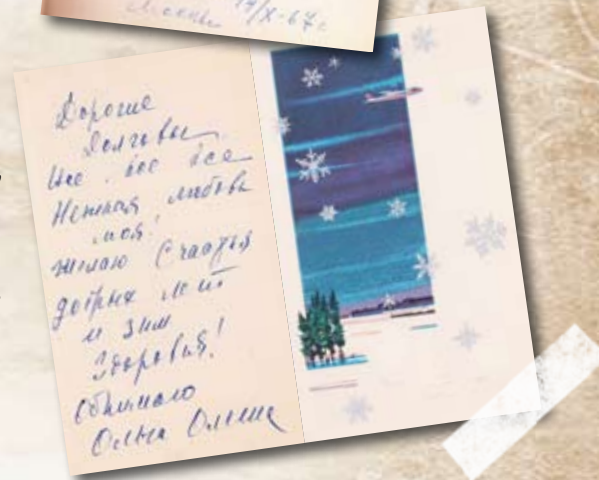 Москва 19/X-67г
Дорогие
Долговы
Все все все
Нежная любовь
моя!
желаю счастья
добрых лет
и зим
Здоровья!
Обнимаю
Ольга